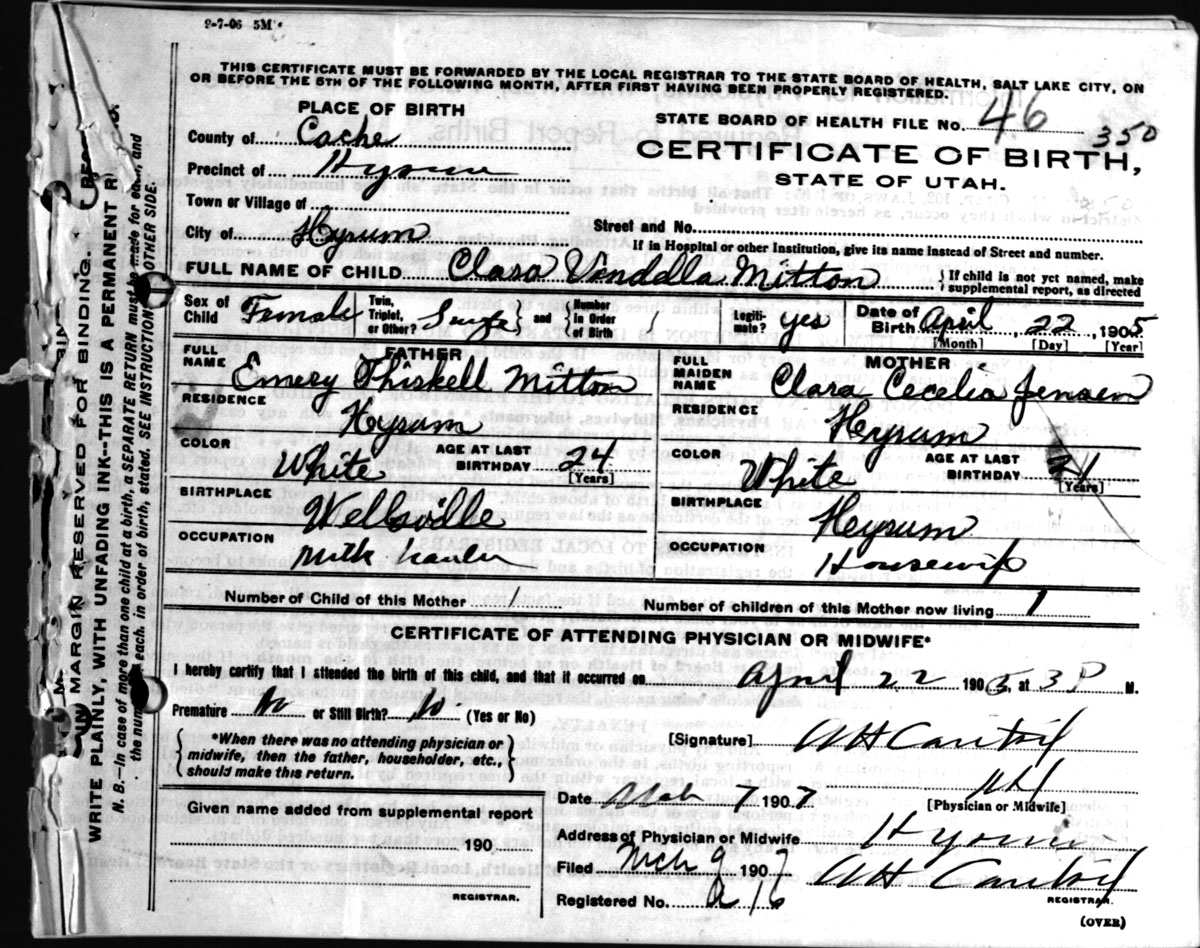 9-7-06 5M
THIS CERTIFICATE MUST BE FORWARDED BY THE LOCAL REGISTRAR TO THE STATE BOARD OF HEALTH, SALT LAKE CITY, ON
OR BEFORE THE 5TH OF THE FOLLOWING MONTH, AFTER FIRST HAVING BEEN PROPERLY REGISTERED.
PLACE OF BIRTH
STATE BOARD OF HEALTH FILE No. 46 350
County of Cache
CERTIFICATE OF BIRTH,
Precinct of Hyrum
STATE OF UTAH.
Town or Village of
City of Hyrum
Street and No.
If in Hospital or other Institution, give its name instead of Street and number.
FULL NAME OF CHILD Clara Vendella Mitton
{If child is not yet named, make supplemental report, as directed
Sex of Child Female
Twin, Triplet, or Other? and {Number in Order of Birth
Legitimate? yes
Date of Birth April 22, 1905
[Month] [Day] [Year]
FATHER
MOTHER
FULL NAME Emery Thiskell Mitton
FULL MAIDEN NAME Clara Cecelia Jensen
RESIDENCE Hyrum
RESIDENCE Hyrum
COLOR White AGE AT LAST BIRTHDAY 24 [Years]
COLOR White AGE AT LAST BIRTHDAY [Years]
BIRTHPLACE Wellsville
BIRTHPLACE Hyrum
OCCUPATION Milk hauler
OCCUPATION Housewife
Number of Child of this Mother 1
Number of children of this Mother now living 1
CERTIFICATE OF ATTENDING PHYSICIAN OR MIDWIFE*
I hereby certify that I attended the birth of this child, and that it occurred on April 22 1905, at 3 P M.
Premature No or Still Birth? No (Yes or No)
{*When there was no attending physician or midwife, then the father, householder, etc., should make this return.}
[Signature]
[Physician or Midwife]
Date Mch 7 1907
Given name added from supplemental report
Address of Physician or Midwife Hyrum
190
Filed Mch 9 1907
REGISTRAR.
Registered No. a 16
REGISTRAR.
(OVER)
MARGIN RESERVED FOR BINDING.
WRITE PLAINLY, WITH UNFADING INK--THIS IS A PERMANENT
N. B.--In case of more than one child at a birth, a SEPARATE RETURN must be made for each, and
the number of each, in order of birth, stated. SEE INSTRUCTION OTHER SIDE.